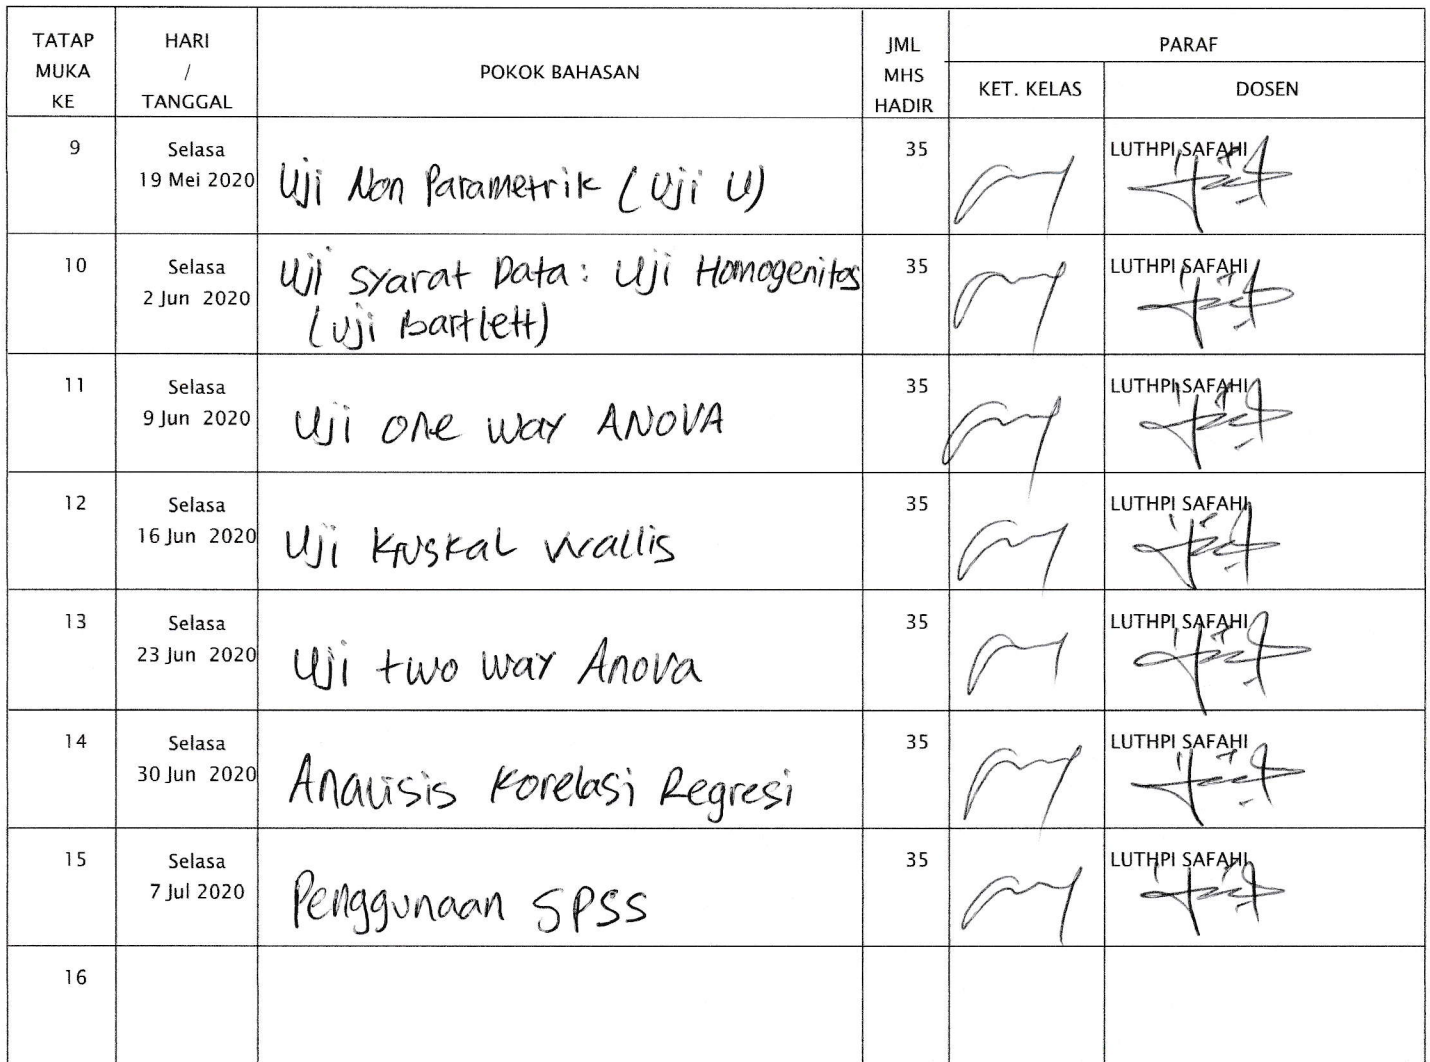 TATAP
MUKA
KE
HARI
/
TANGGAL
POKOK BAHASAN
JML
MHS
HADIR
PARAF
KET. KELAS
DOSEN
9
Selasa
19 Mei 2020
Uji Non Parametrik (Uji U)
35
LUTHPI SAFAHI
10
Selasa
2 Jun 2020
Uji Syarat Data: Uji Homogenitas
(Uji Bartlett)
35
LUTHPI SAFAHI
11
Selasa
9 Jun 2020
Uji one way ANOVA
35
LUTHPI SAFAHI
12
Selasa
16 Jun 2020
Uji Kruskal Wallis
35
LUTHPI SAFAHI
13
Selasa
23 Jun 2020
Uji two way Anova
35
LUTHPI SAFAHI
14
Selasa
30 Jun 2020
Analisis Korelasi Regresi
35
LUTHPI SAFAHI
15
Selasa
7 Jul 2020
Penggunaan SPSS
35
LUTHPI SAFAHI
16